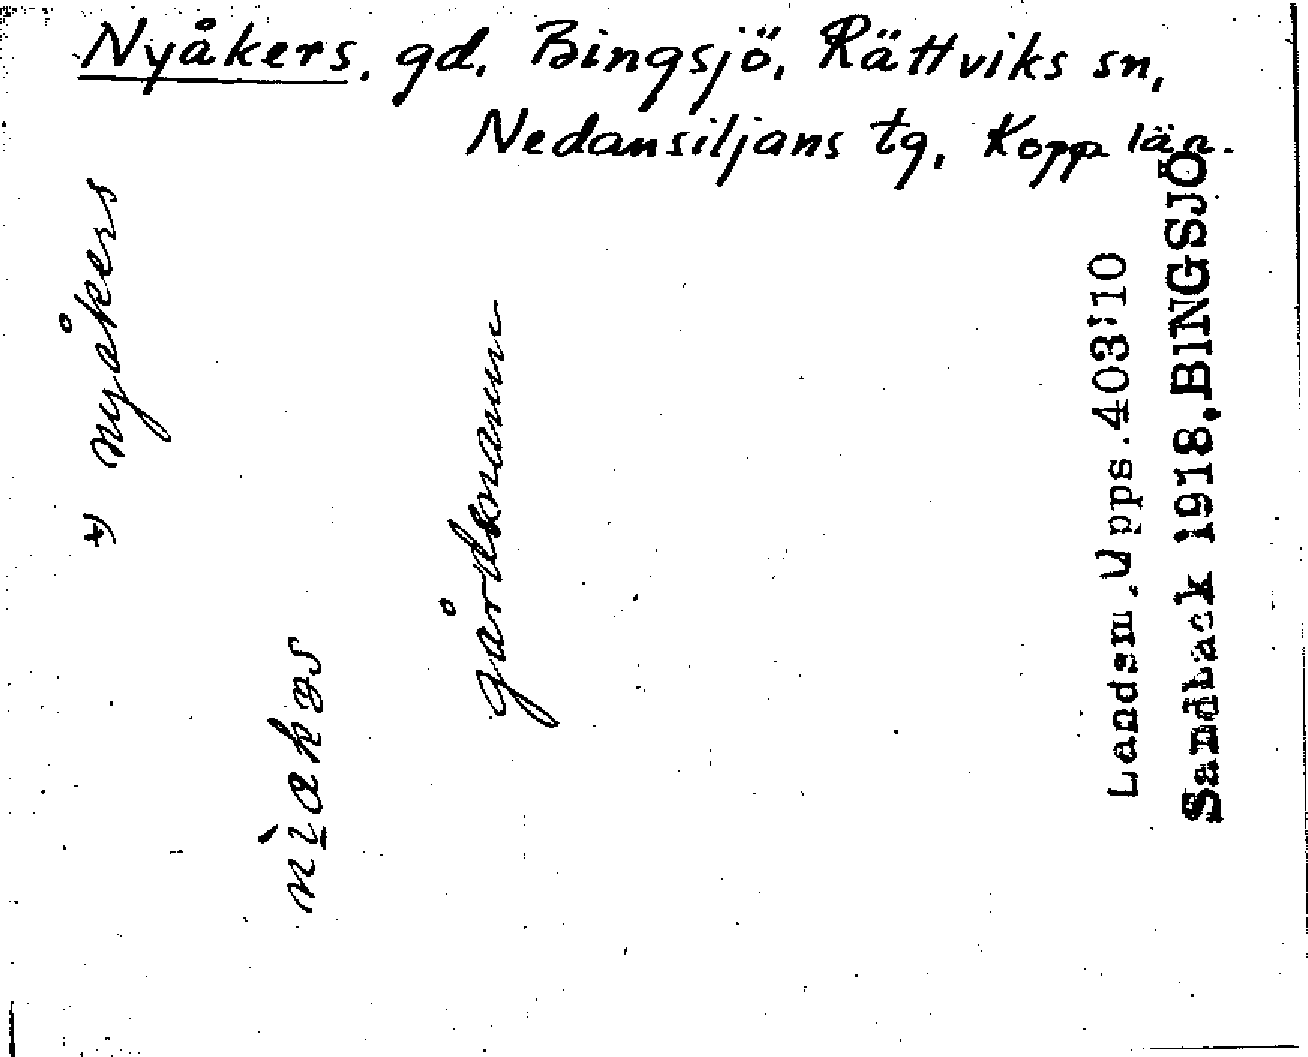 Nyåkers, gd, Bingsjö, Rättviks sn,
Nedansiljans tg, Kopp län.
*) nyåkers
gårdsnamn
Landsm. Upps. 403:10
Sandback 1918. BINGSJÖ